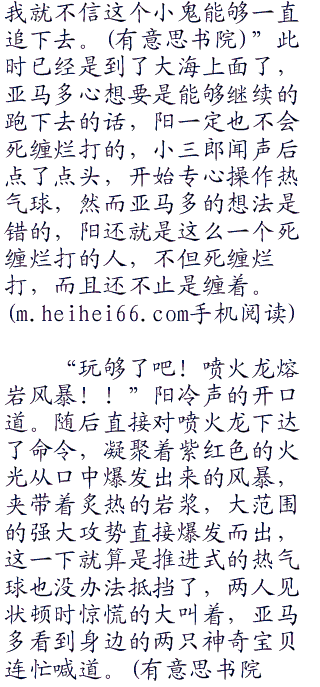 我就不信这个小鬼能够一直
追下去。(有意思书院)”此
时已经是到了大海上面了，
亚马多心想要是能够继续的
跑下去的话，阳一定也不会
死缠烂打的，小三郎闻声后
点了点头，开始专心操作热
气球，然而亚马多的想法是
错的，阳还就是这么一个死
缠烂打的人，不但死缠烂
打，而且还不止是缠着。
(m.heihei66.com手机阅读)
“玩够了吧！喷火龙熔
岩风暴！！”阳冷声的开口
道。随后直接对喷火龙下达
了命令，凝聚着紫红色的火
光从口中爆发出来的风暴，
夹带着炙热的岩浆，大范围
的强大攻势直接爆发而出，
这一下就算是推进式的热气
球也没办法抵挡了，两人见
状顿时惊慌的大叫着，亚马
多看到身边的两只神奇宝贝
连忙喊道。(有意思书院